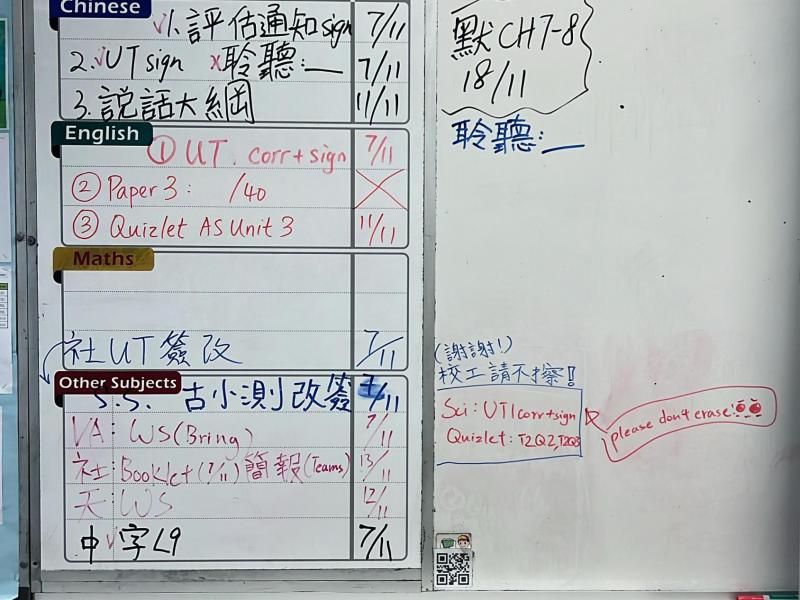 Chinese
1. 評估通知 sign 7/11
2. UT sign 聆聽:__ 7/11
3. 說話大綱 11/11
English
① UT. corr + sign 7/11
② Paper 3: /40
③ Quizlet AS Unit 3 11/11
Maths
社 UT 簽改 7/11
Other Subjects
S.S. 古小測改簽 7/11
VA: WS (Bring) 7/11
社: Booklet (7/11) 簡報 (Teams) 13/11
天: WS 12/11
中 字L9 7/11
默 CH7-8
18/11
聆聽:__
(謝謝!)
校工請不擦!!
Sci: UT1 corr+sign
Quizlet: T2Q2, T2Q3
please don't erase!